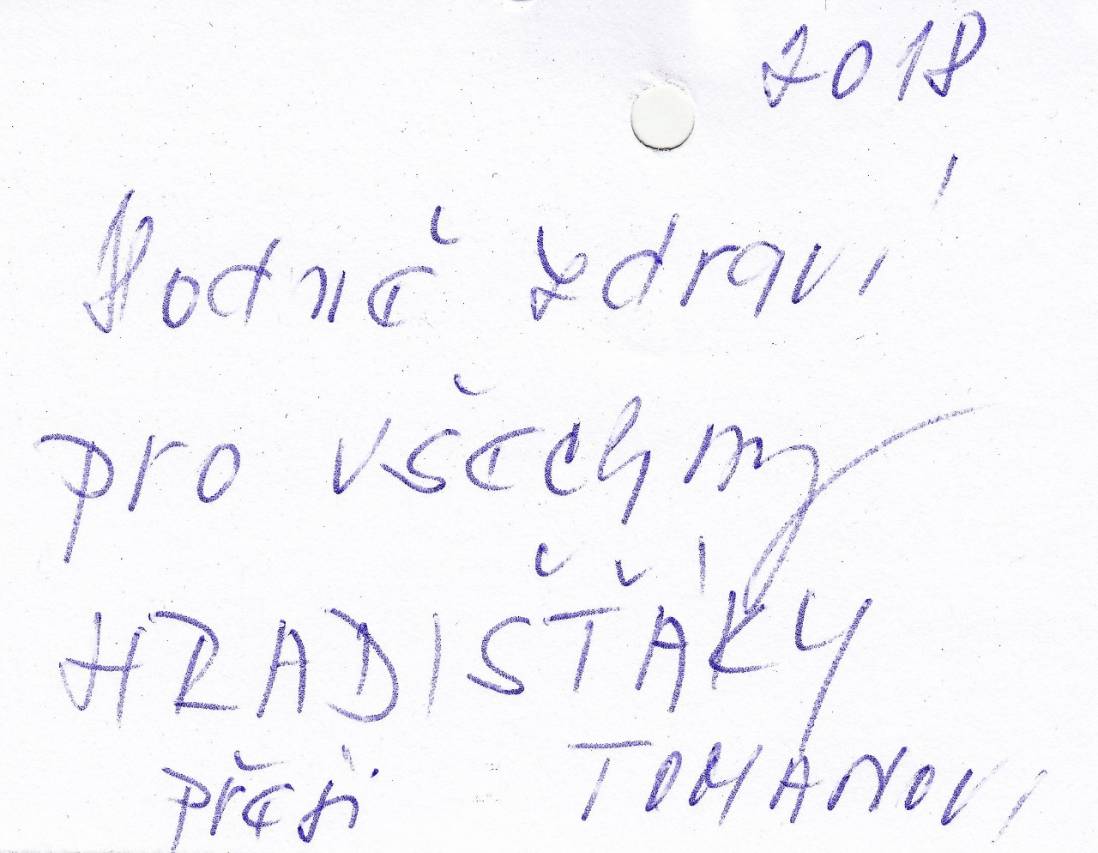 2018
Hodně zdraví
pro všechny
HRADIŠŤÁKY
přeji TOMANOVI